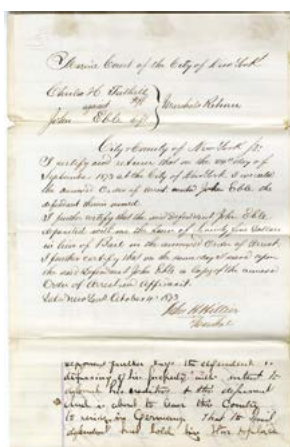 Marine Court of the City of New York
Charles H
against Plff
John Eble Deft
Marshals Return
City & County of New York ss:
I certify and return that on the day of
September 1873 at the City of New York I executed
the annexed Order of Arrest John Eble the
defendant therein named.
I further certify that the said defendant John Eble
deposited with me the sum of Twenty five Dollars
in lieu of Bail on the annexed Order of Arrest.
I further certify that on the same day I served upon
the said defendant John Eble a copy of the annexed
Order of Arrest and affidavit.
Dated New York October 4th 1873
John H
Marshal
deponent further says the defendant is
disposing of his property with intent to
defraud his creditors & this deponent
and is about to leave this Country
to reside in Germany. That the said
defendant has sold his